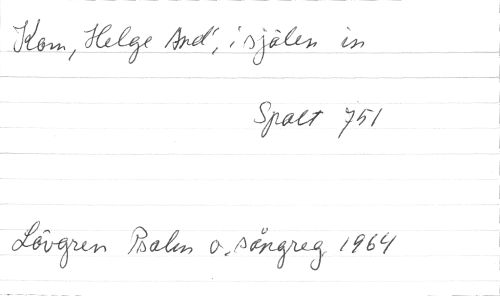 Kom, Helge And', i själen in
Spalt 751
Lövgren Psalm o. sångreg 1964